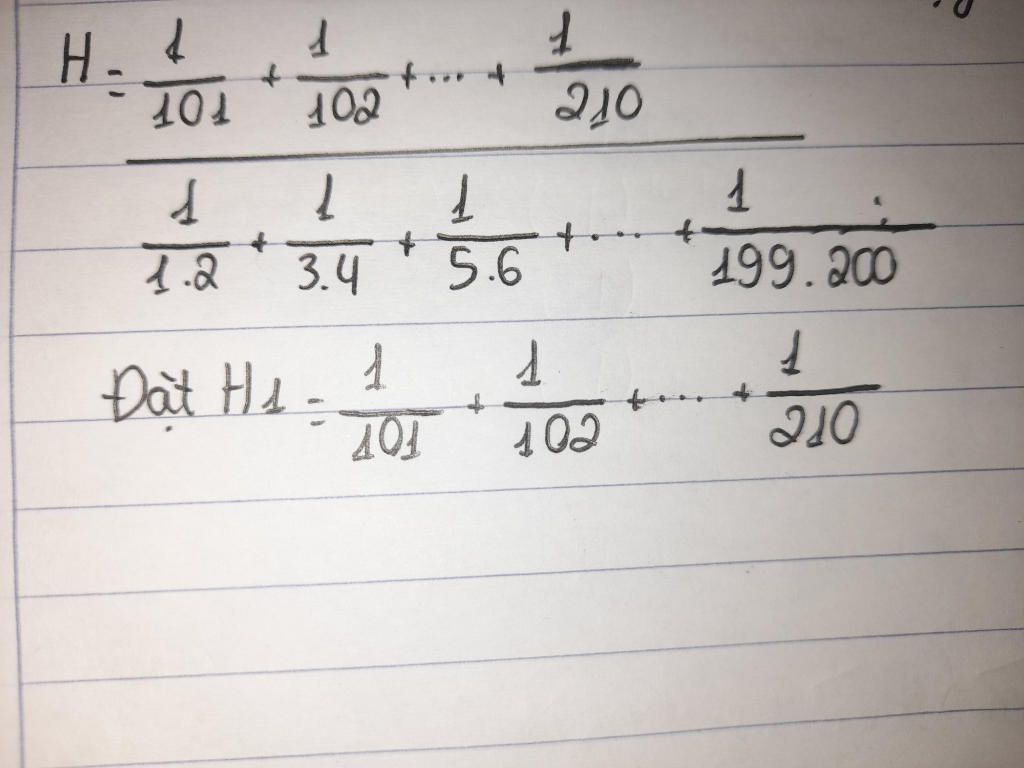 H = 1/101 + 1/102 + ... + 1/210
1/1.2 + 1/3.4 + 1/5.6 + ... + 1/199.200
Đặt H1 = 1/101 + 1/102 + ... + 1/210